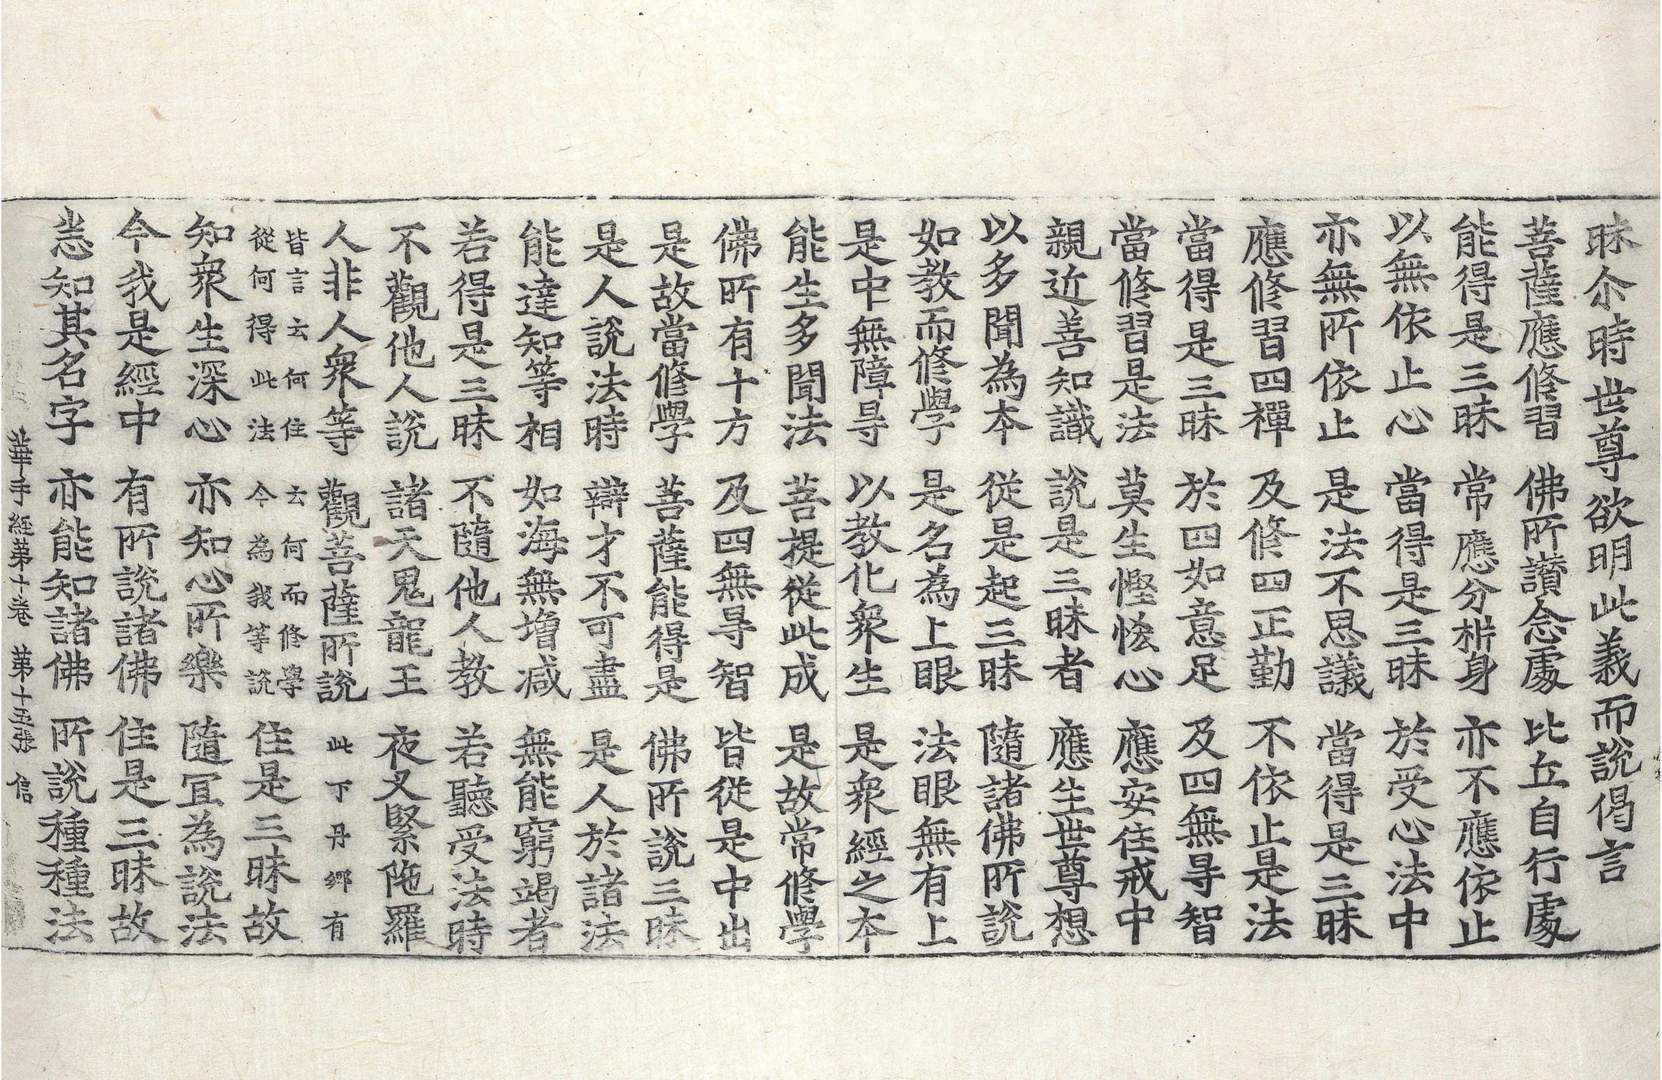 昧尒時世尊欲明此義而說偈言
菩薩應修習 佛所讚念處 比丘自行處
能得是三昧 常應分析身 亦不應依止
以無依止心 當得是三昧 於受心法中
亦無所依止 是法不思議 當得是三昧
應修習四禪 及修四正勤 不依止是法
當得是三昧 於四如意足 及四無㝵智
當修習是法 莫生慳悋心 應安住戒中
親近善知識 說是三昧者 應生世尊想
以多聞為本 從是起三昧 隨諸佛所說
如教而修學 是名為上眼 法眼無有上
是中無障㝵 以教化衆生 是衆經之本
能生多聞法 菩提從此成 是故常修學
佛所有十方 及四無㝵智 皆從是中出
是故當修學 菩薩能得是 佛所說三昧
是人說法時 辯才不可盡 是人於諸法
能達知等相 如海無增减 無能窮竭者
若得是三昧 不隨他人教 若聽受法時
不觀他人說 諸天鬼龍王 夜叉緊陁羅
人非人衆等 觀菩薩所說 此下丹鄉有
皆言云何住 云何而修學
從何得此法 今為我等說 住是三昧故
知衆生深心 亦知心所樂 隨冝為說法
今我是經中 有所說諸佛 住是三昧故
悉知其名字 亦能知諸佛 所說種種法
華手經第十卷 第十五張 信